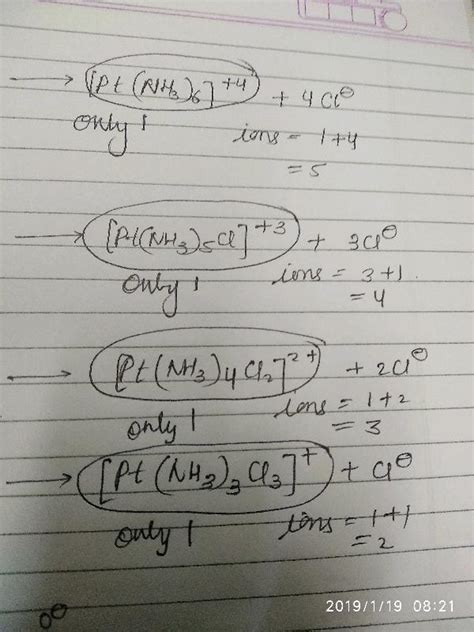 → [Pt(NH3)6]+4 + 4Cl⊖
only 1 ions = 1+4
= 5
→ [Pt(NH3)5Cl]+3 + 3Cl⊖
only 1 ions = 3+1
= 4
→ [Pt(NH3)4Cl2]2+ + 2Cl⊖
only 1 ions = 1+2
= 3
→ [Pt(NH3)3Cl3]+ + Cl⊖
only 1 ions = 1+1
= 2
2019/1/19 08:21